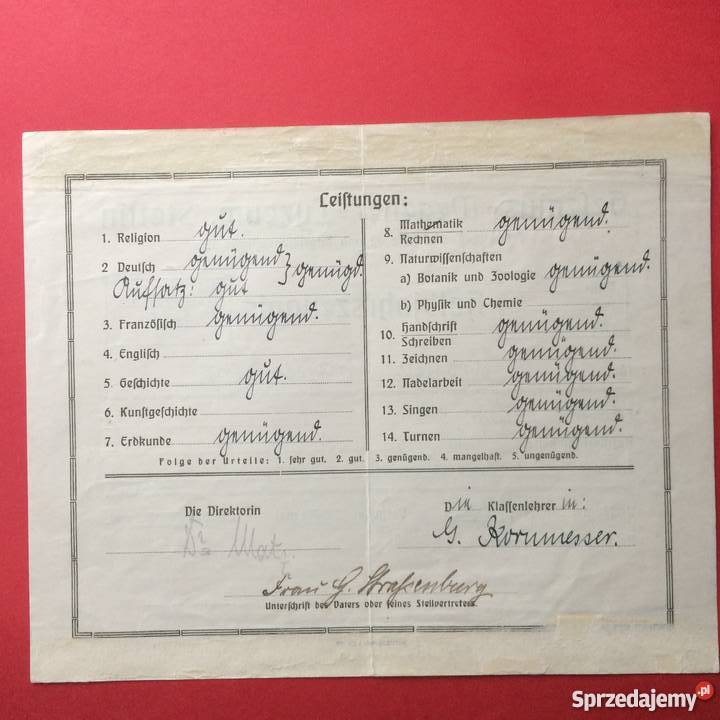 Leistungen:
1. Religion gut.
2 Deutsch genügend } genügd.
Aufsatz: gut
3. Französisch genügend.
4. Englisch
5. Geschichte gut.
6. Kunstgeschichte
7. Erdkunde genügend.
8. Mathematik genügend.
Rechnen
9. Naturwissenschaften
a) Botanik und Zoologie genügend.
b) Physik und Chemie
10. Handschrift genügend.
Schreiben
11. Zeichnen genügend.
12. Nadelarbeit genügend.
13. Singen genügend.
14. Turnen genügend.
Folge der Urteile: 1. sehr gut. 2. gut. 3. genügend. 4. mangelhaft. 5. ungenügend.
Die Direktorin
Die Klassenlehrerin:
G. Kornmesser.
Frau G. Strassenburg
Unterschrift des Vaters oder seines Stellvertreters.
Sprzedajemy.pl